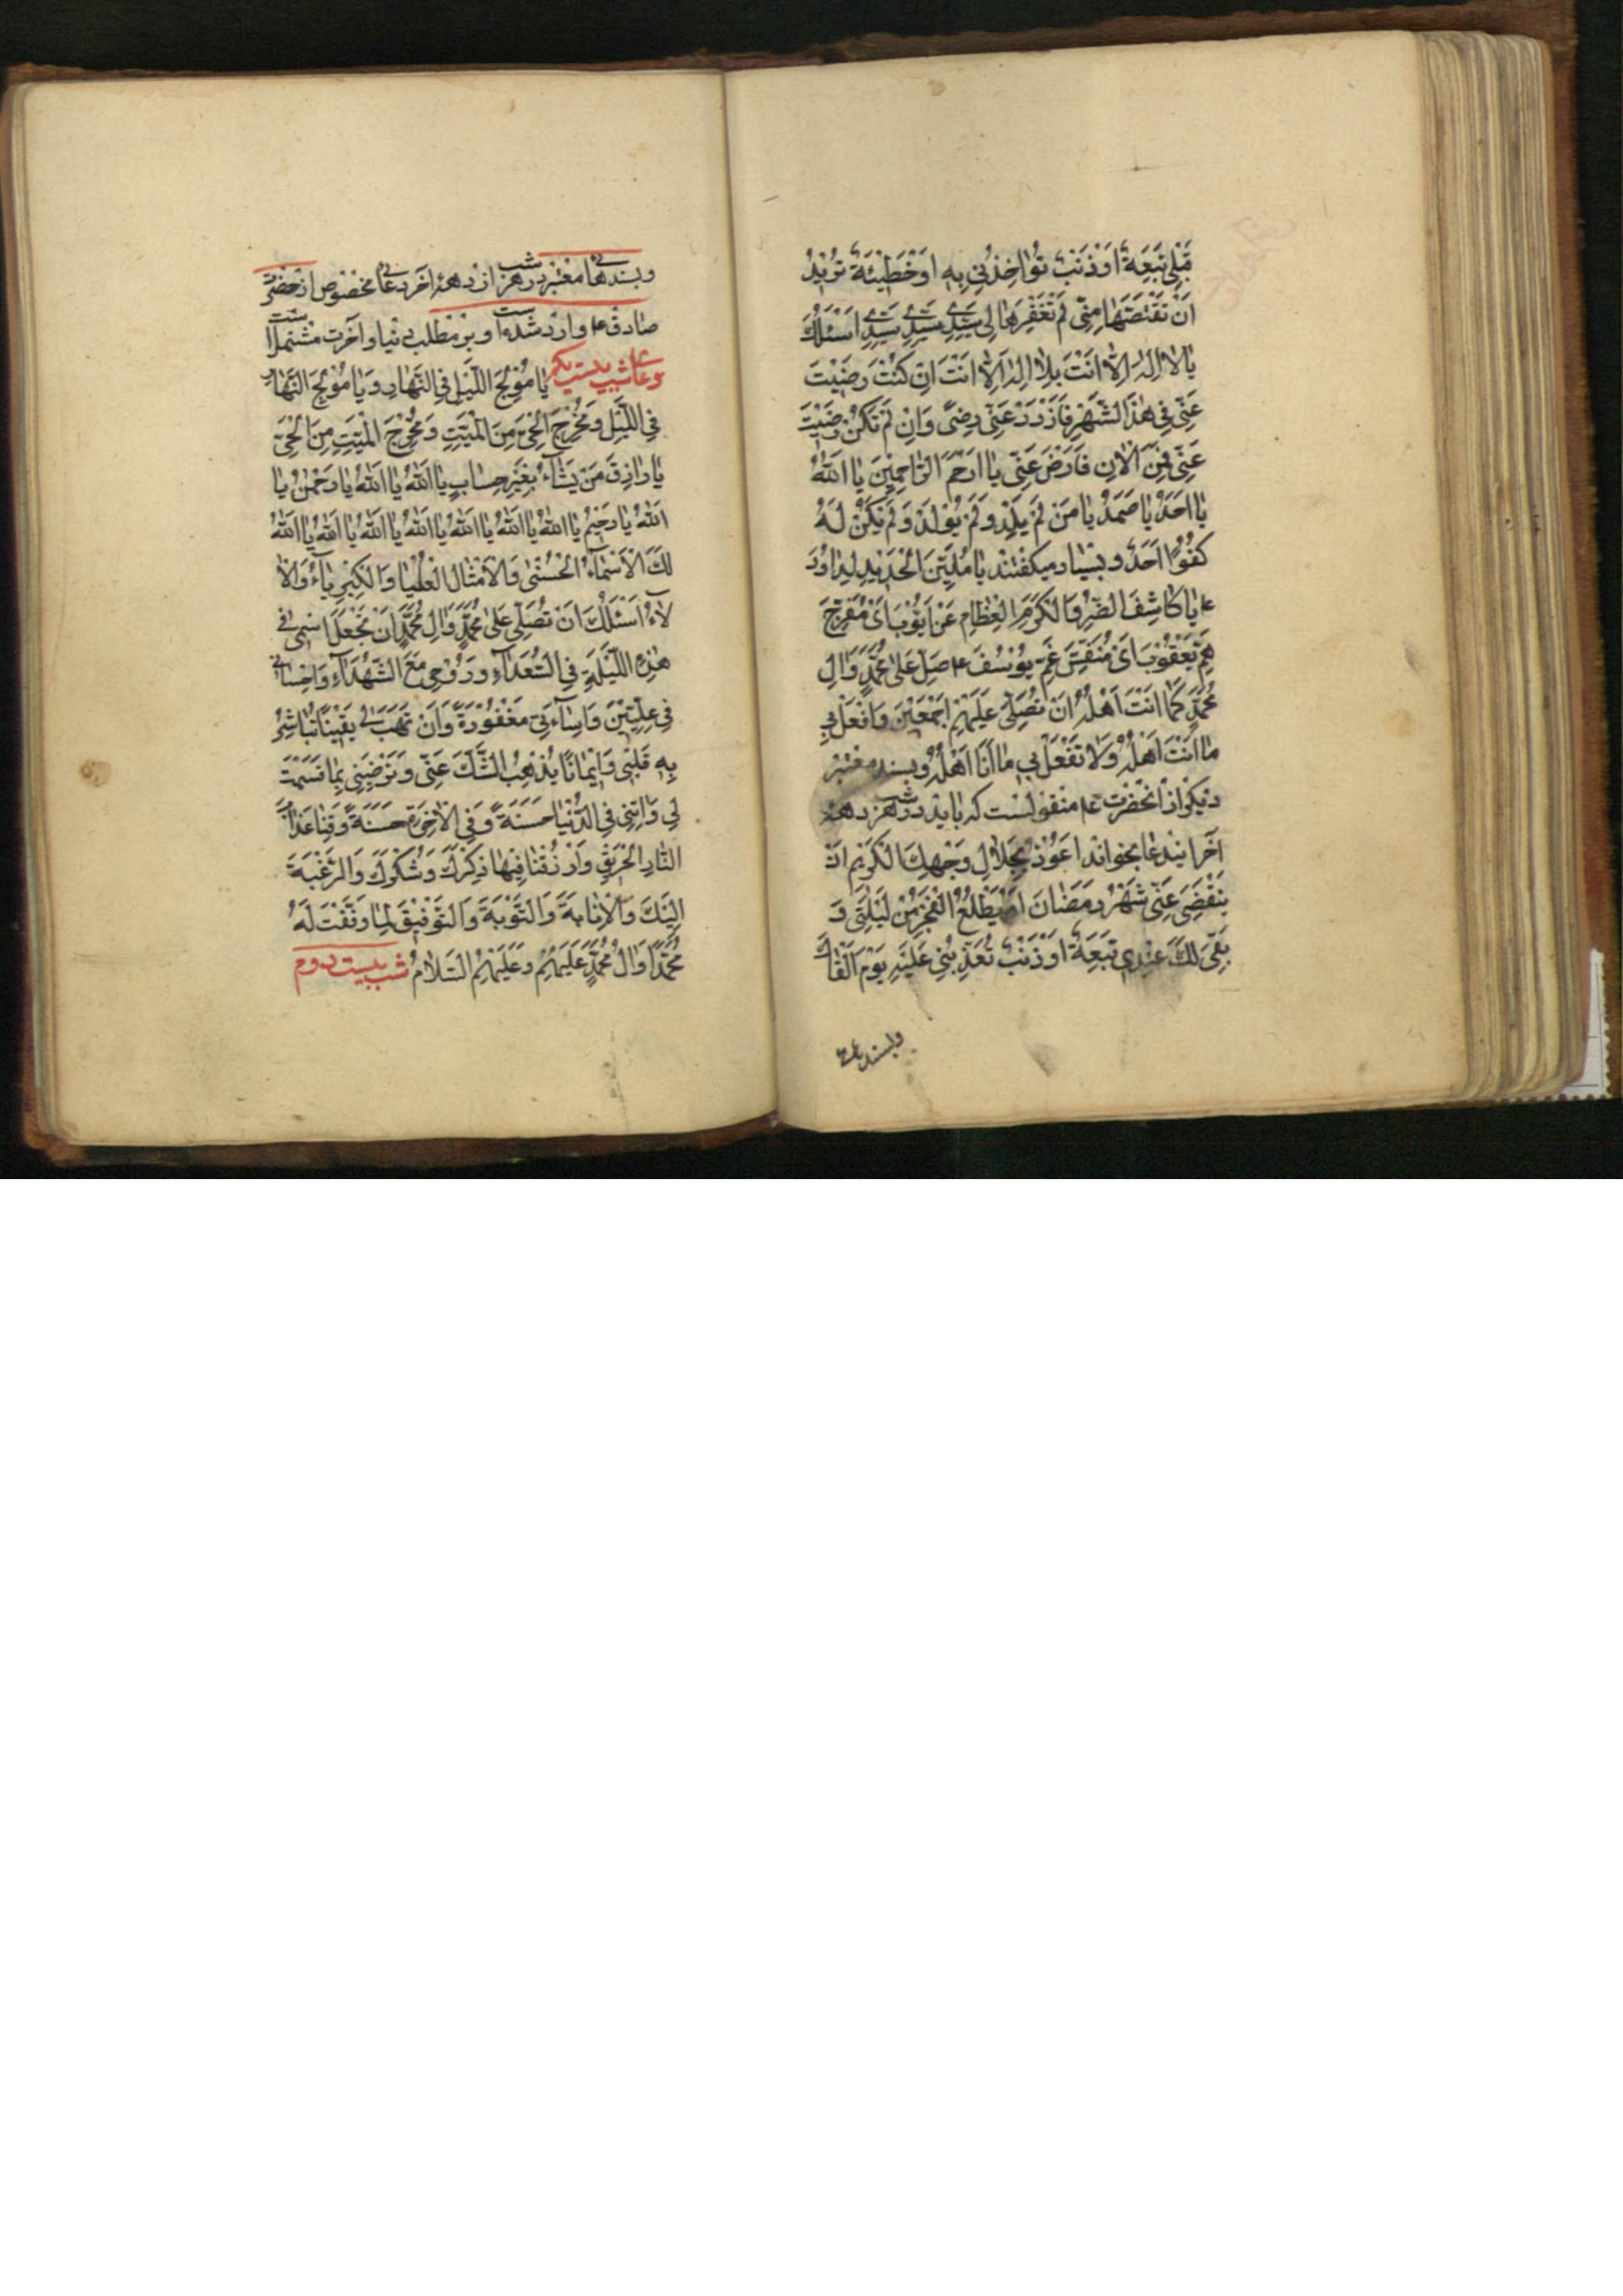 قَبْلِي تَبِعَةٌ اَوْ ذَنْبٌ تُؤَاخِذُنِي بِهِ اَوْ خَطِيْئَةٌ تُرِيْدُ
اَنْ تَقْتَصَّهَا مِنِّي لَمْ تَغْفِرْهَا لِي سَيِّدِي سَيِّدِي سَيِّدِي اَسْئَلُكَ
يَا لا اِلٰهَ اِلَّا اَنْتَ بِلا اِلٰهَ اِلَّا اَنْتَ اِنْ كُنْتَ رَضِيْتَ
عَنِّي فِي هٰذَا الشَّهْرِ فَازْدَدْ عَنِّي رِضًى وَاِنْ لَمْ تَكُنْ رَضِيْتَ
عَنِّي فَمِنَ الْاٰنِ فَارْضَ عَنِّي يَا اَرْحَمَ الرَّاحِمِيْنَ يَا اَللّٰهُ
يَا اَحَدُ يَا صَمَدُ يَا مَنْ لَمْ يَلِدْ وَلَمْ يُوْلَدْ وَلَمْ يَكُنْ لَهُ
كُفُوًا اَحَدٌ و بسیار میکفتند يَا مُلَيِّنَ الْحَدِيْدِ لِدَاوُدَ
ع يَا كَاشِفَ الضُّرِّ وَالْكُرَبِ الْعِظَامِ عَنْ اَيُّوْبَ اَىْ مُفَرِّجَ
هَمِّ يَعْقُوْبَ اَىْ مُنَفِّسَ غَمِّ يُوْسُفَ ع صَلِّ عَلٰى مُحَمَّدٍ وَاٰلِ
مُحَمَّدٍ كَمَا اَنْتَ اَهْلُهُ اَنْ تُصَلِّيَ عَلَيْهِمْ اَجْمَعِيْنَ وَافْعَلْ بِي
مَا اَنْتَ اَهْلُهُ وَلَا تَفْعَلْ بِي مَا اَنَا اَهْلُهُ و بسند معتبر
دیکر از آنحضرت ع منقولست که باید در هر شب دههٔ
آخر ایندعا بخواند اَعُوْذُ بِجَلَالِ وَجْهِكَ الْكَرِيْمِ اَنْ
يَنْقَضِيَ عَنِّي شَهْرُ رَمَضَانَ اَوْ يَطْلُعَ الْفَجْرُ مِنْ لَيْلَتِي وَ
بَقِيَ لَكَ عِنْدِي تَبِعَةٌ اَوْ ذَنْبٌ تُعَذِّبُنِي عَلَيْهِ يَوْمَ اَلْقَاكَ
و بسندها
و بسندهای معتبر در هر شب از دههٔ آخر دعای مخصوص از حضرت
صادق ع وارد شده است و بر مطلب دنیا و آخرت مشتمل است
دعای شب بیست یکم يَا مُوْلِجَ اللَّيْلِ فِي النَّهَارِ وَيَا مُوْلِجَ النَّهَارِ
فِي اللَّيْلِ وَمُخْرِجَ الْحَيِّ مِنَ الْمَيِّتِ وَمُخْرِجَ الْمَيِّتِ مِنَ الْحَيِّ
يَا رَازِقَ مَنْ يَشَآءُ بِغَيْرِ حِسَابٍ يَا اَللّٰهُ يَا اَللّٰهُ يَا رَحْمٰنُ يَا
اَللّٰهُ يَا رَحِيْمُ يَا اَللّٰهُ يَا اَللّٰهُ يَا اَللّٰهُ يَا اَللّٰهُ يَا اَللّٰهُ يَا اَللّٰهُ يَا اَللّٰهُ
لَكَ الْاَسْمَآءُ الْحُسْنٰى وَالْاَمْثَالُ الْعُلْيَا وَالْكِبْرِيَآءُ وَالْاٰ
لَآءُ اَسْئَلُكَ اَنْ تُصَلِّيَ عَلٰى مُحَمَّدٍ وَاٰلِ مُحَمَّدٍ اَنْ تَجْعَلَ اسْمِي فِي
هٰذِهِ اللَّيْلَةِ فِي السُّعَدَآءِ وَرُوْحِي مَعَ الشُّهَدَآءِ وَاِحْسَانِي
فِي عِلِّيِّيْنَ وَاِسَآءَتِي مَغْفُوْرَةً وَاَنْ تَهَبَ لِي يَقِيْنًا تُبَاشِرُ
بِهِ قَلْبِي وَاِيْمَانًا يُذْهِبُ الشَّكَّ عَنِّي وَتُرْضِيَنِي بِمَا قَسَمْتَ
لِي وَاٰتِنِي فِي الدُّنْيَا حَسَنَةً وَفِي الْاٰخِرَةِ حَسَنَةً وَقِنَا عَذَابَ
النَّارِ الْحَرِيْقِ وَارْزُقْنَا فِيْهَا ذِكْرَكَ وَشُكْرَكَ وَالرَّغْبَةَ
اِلَيْكَ وَالْاِنَابَةَ وَالتَّوْبَةَ وَالتَّوْفِيْقَ لِمَا وَفَّقْتَ لَهُ
مُحَمَّدًا وَاٰلَ مُحَمَّدٍ عَلَيْهِمْ وَعَلَيْهِمُ السَّلَامُ شب بیست دوم